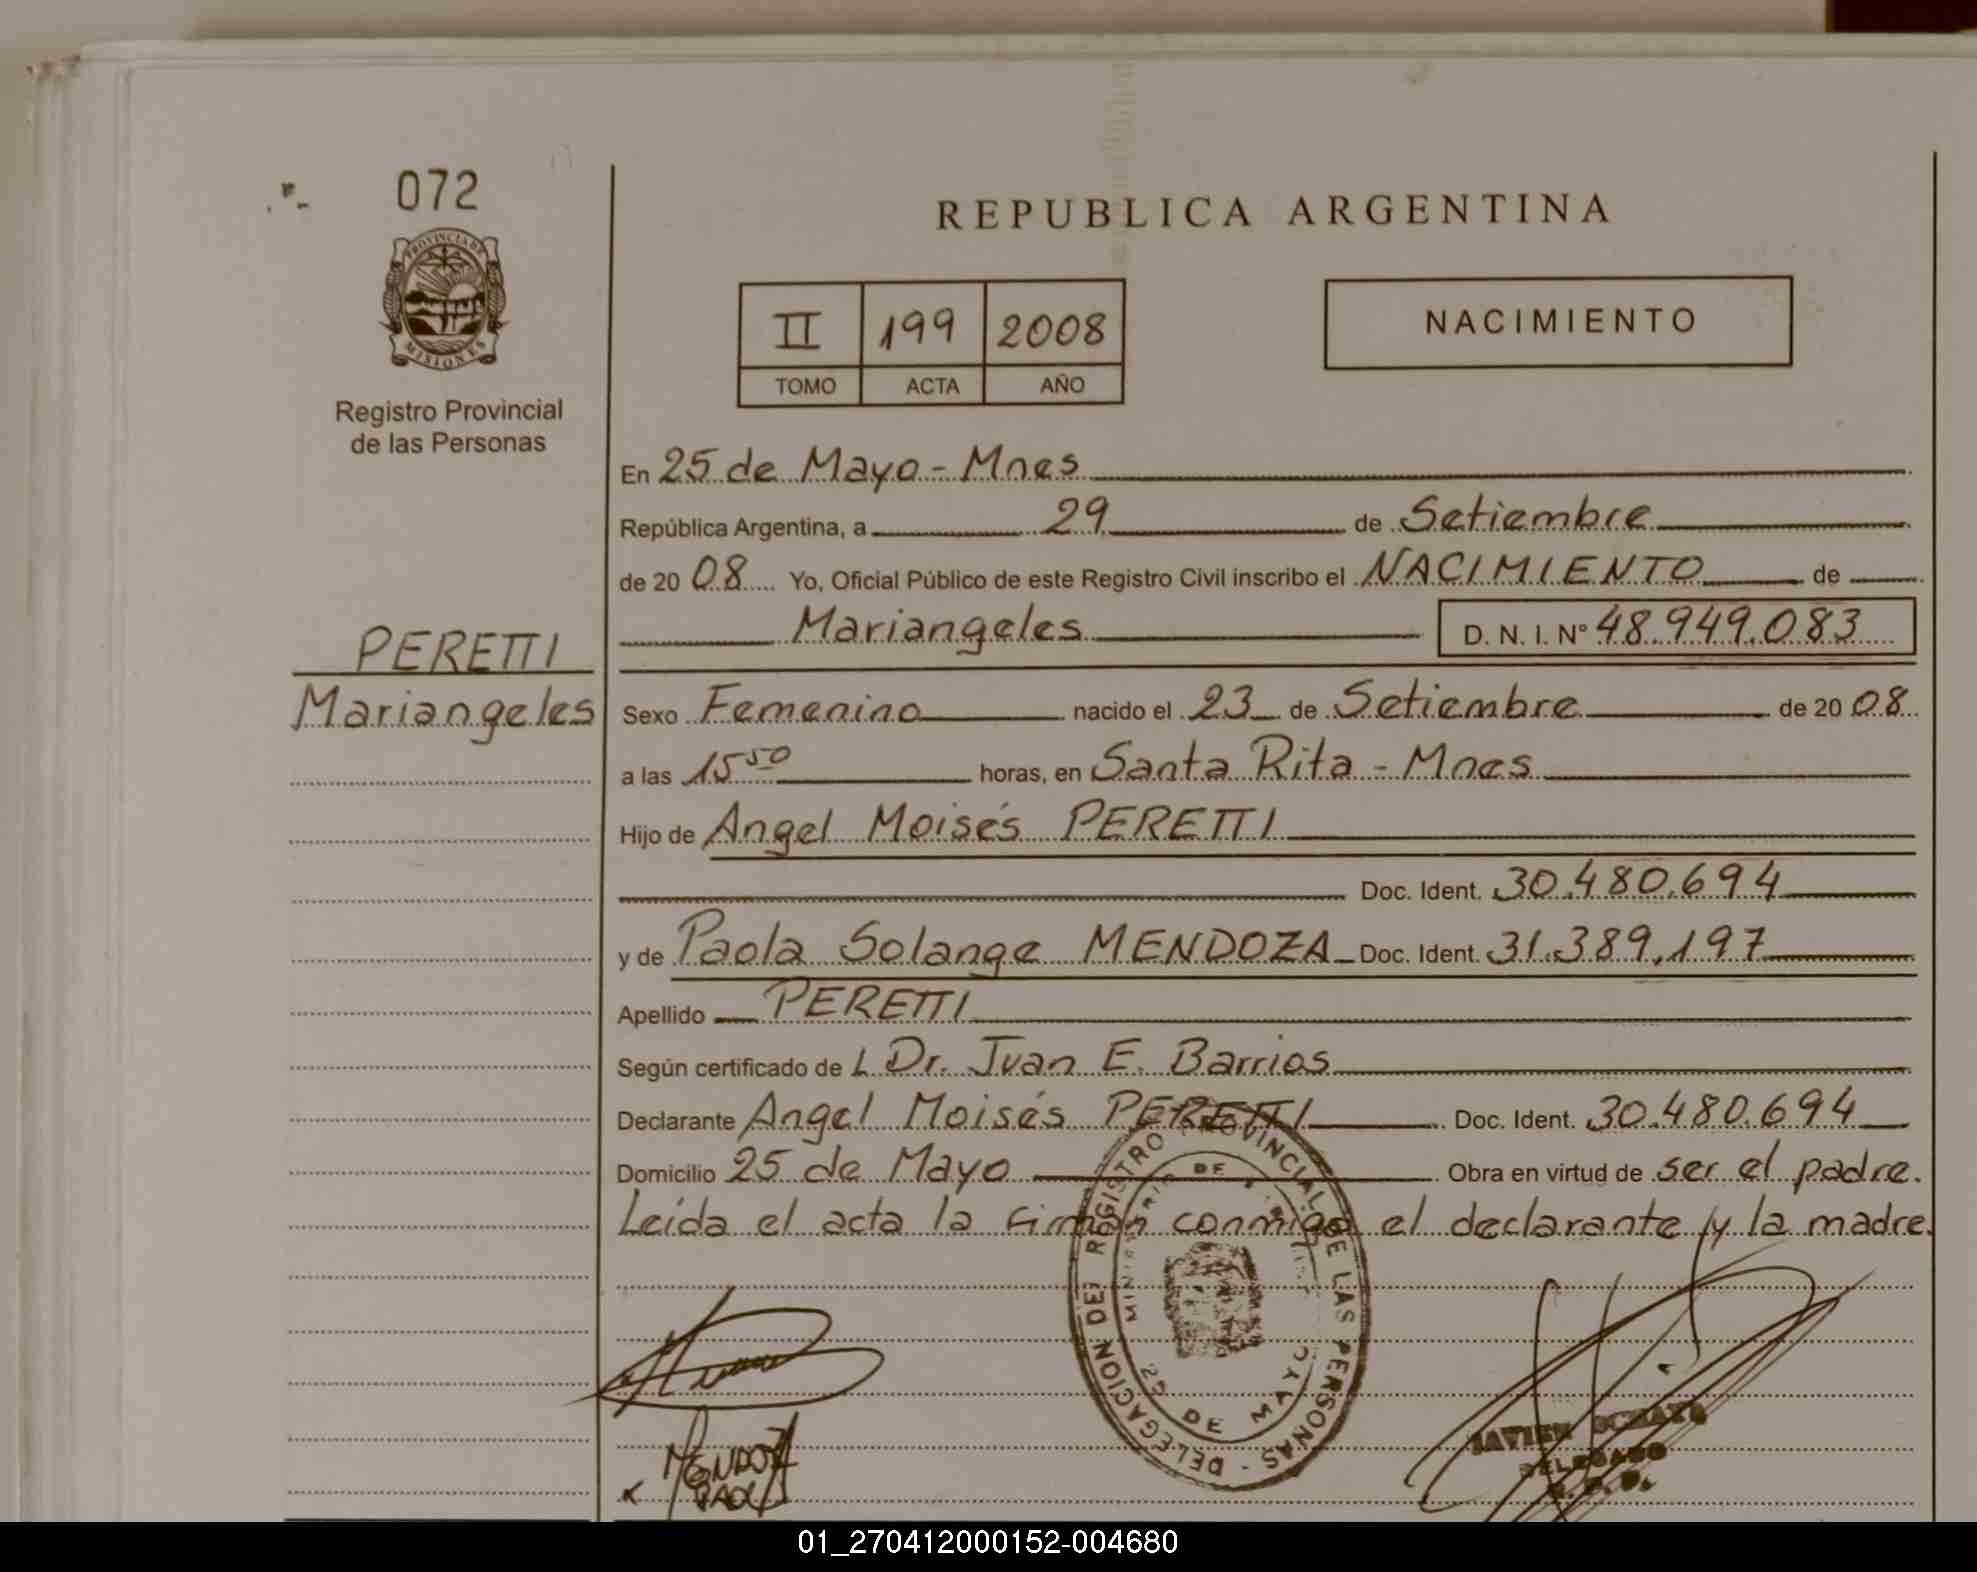 072
PROVINCIA DE
MISIONES
Registro Provincial
de las Personas
REPUBLICA ARGENTINA
II 199 2008
TOMO ACTA AÑO
NACIMIENTO
En 25 de Mayo - Mnes
República Argentina, a 29 de Setiembre
de 20 08 Yo, Oficial Público de este Registro Civil inscribo el NACIMIENTO de
Mariangeles D. N. I. N° 48.949.083
PERETTI
Mariangeles
Sexo Femenino nacido el 23 de Setiembre de 20 08
a las 15 50 horas, en Santa Rita - Mnes
Hijo de Angel Moisés PERETTI
Doc. Ident. 30.480.694
y de Paola Solange MENDOZA Doc. Ident. 31.389.197
Apellido PERETTI
Según certificado de L Dr. Juan E. Barrios
Declarante Angel Moisés PERETTI Doc. Ident. 30.480.694
Domicilio 25 de Mayo Obra en virtud de ser el padre.
Leída el acta la firman conmigo el declarante y la madre.
DELEGACION DEL REGISTRO PROVINCIAL DE LAS PERSONAS -
MINISTERIO DE
25 DE MAYO
MENDOZA
PAOLA
JAVIER
DELEGADO
01_270412000152-004680